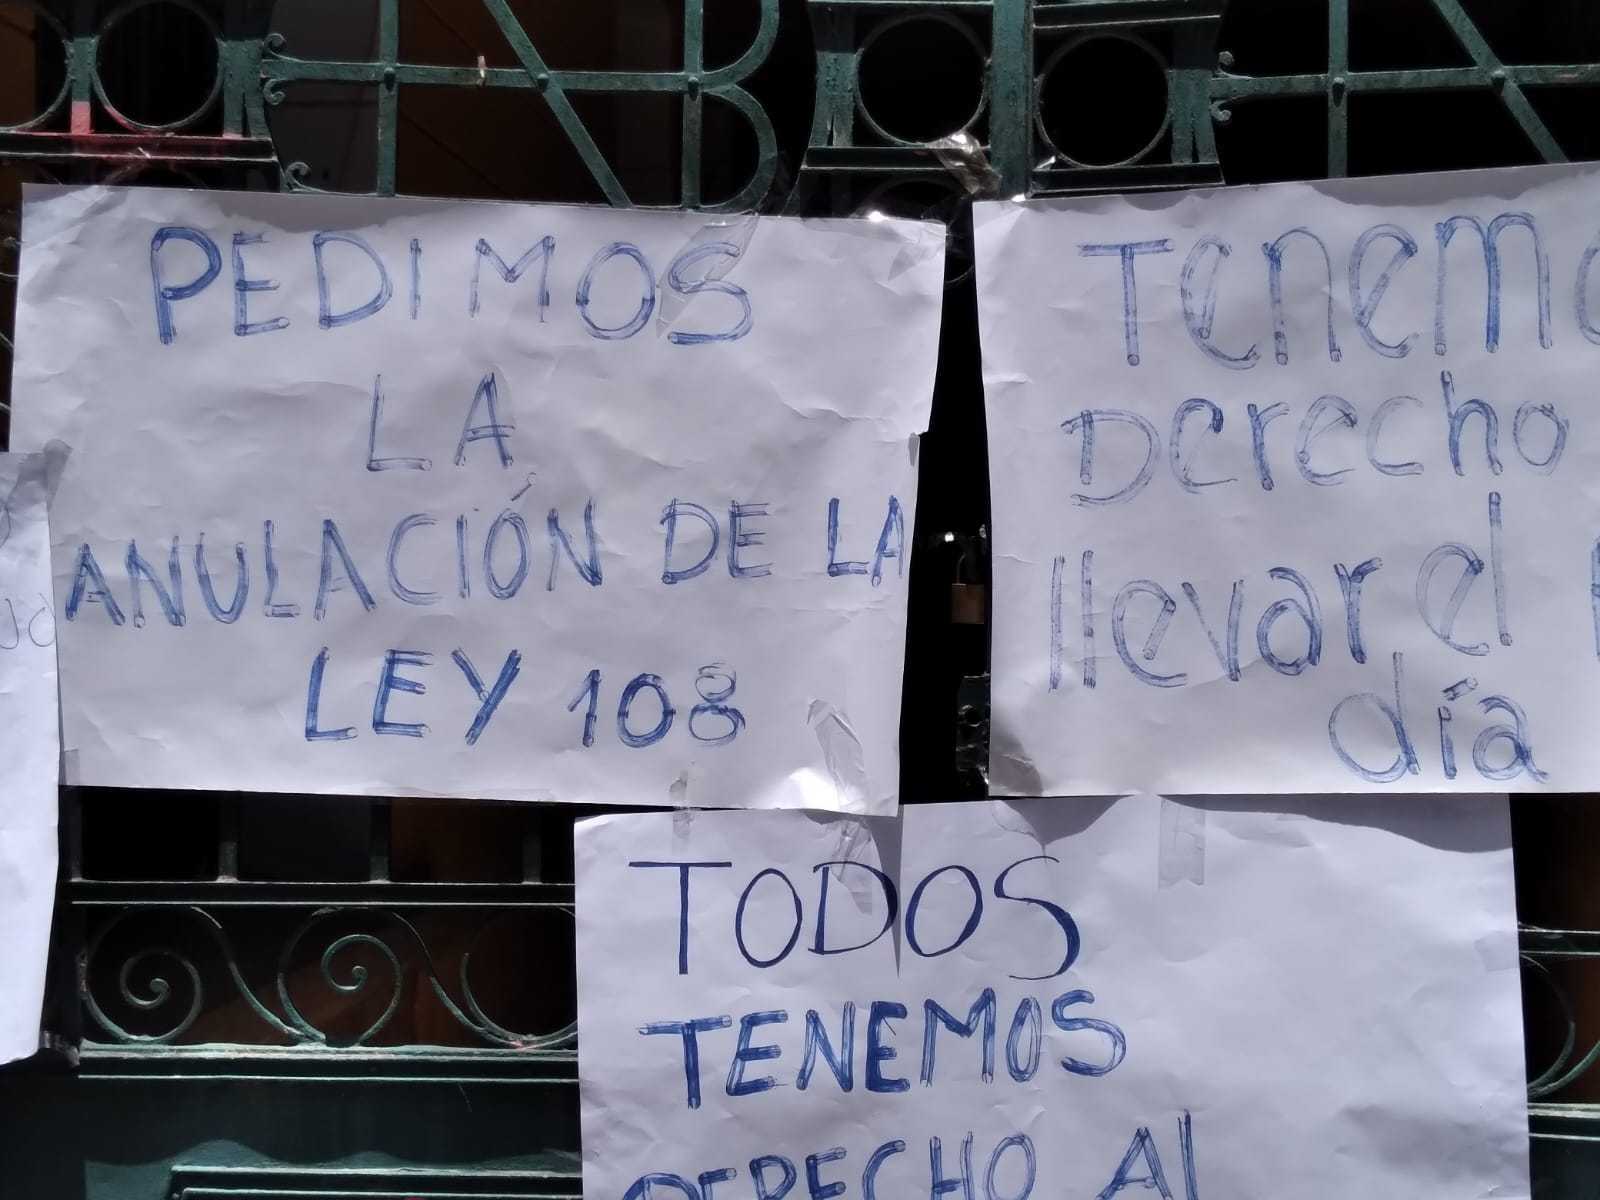 PEDIMOS
LA
ANULACIÓN DE LA
LEY 108
Tenemo
Derecho
llevar el
día
TODOS
TENEMOS
DERECHO Al